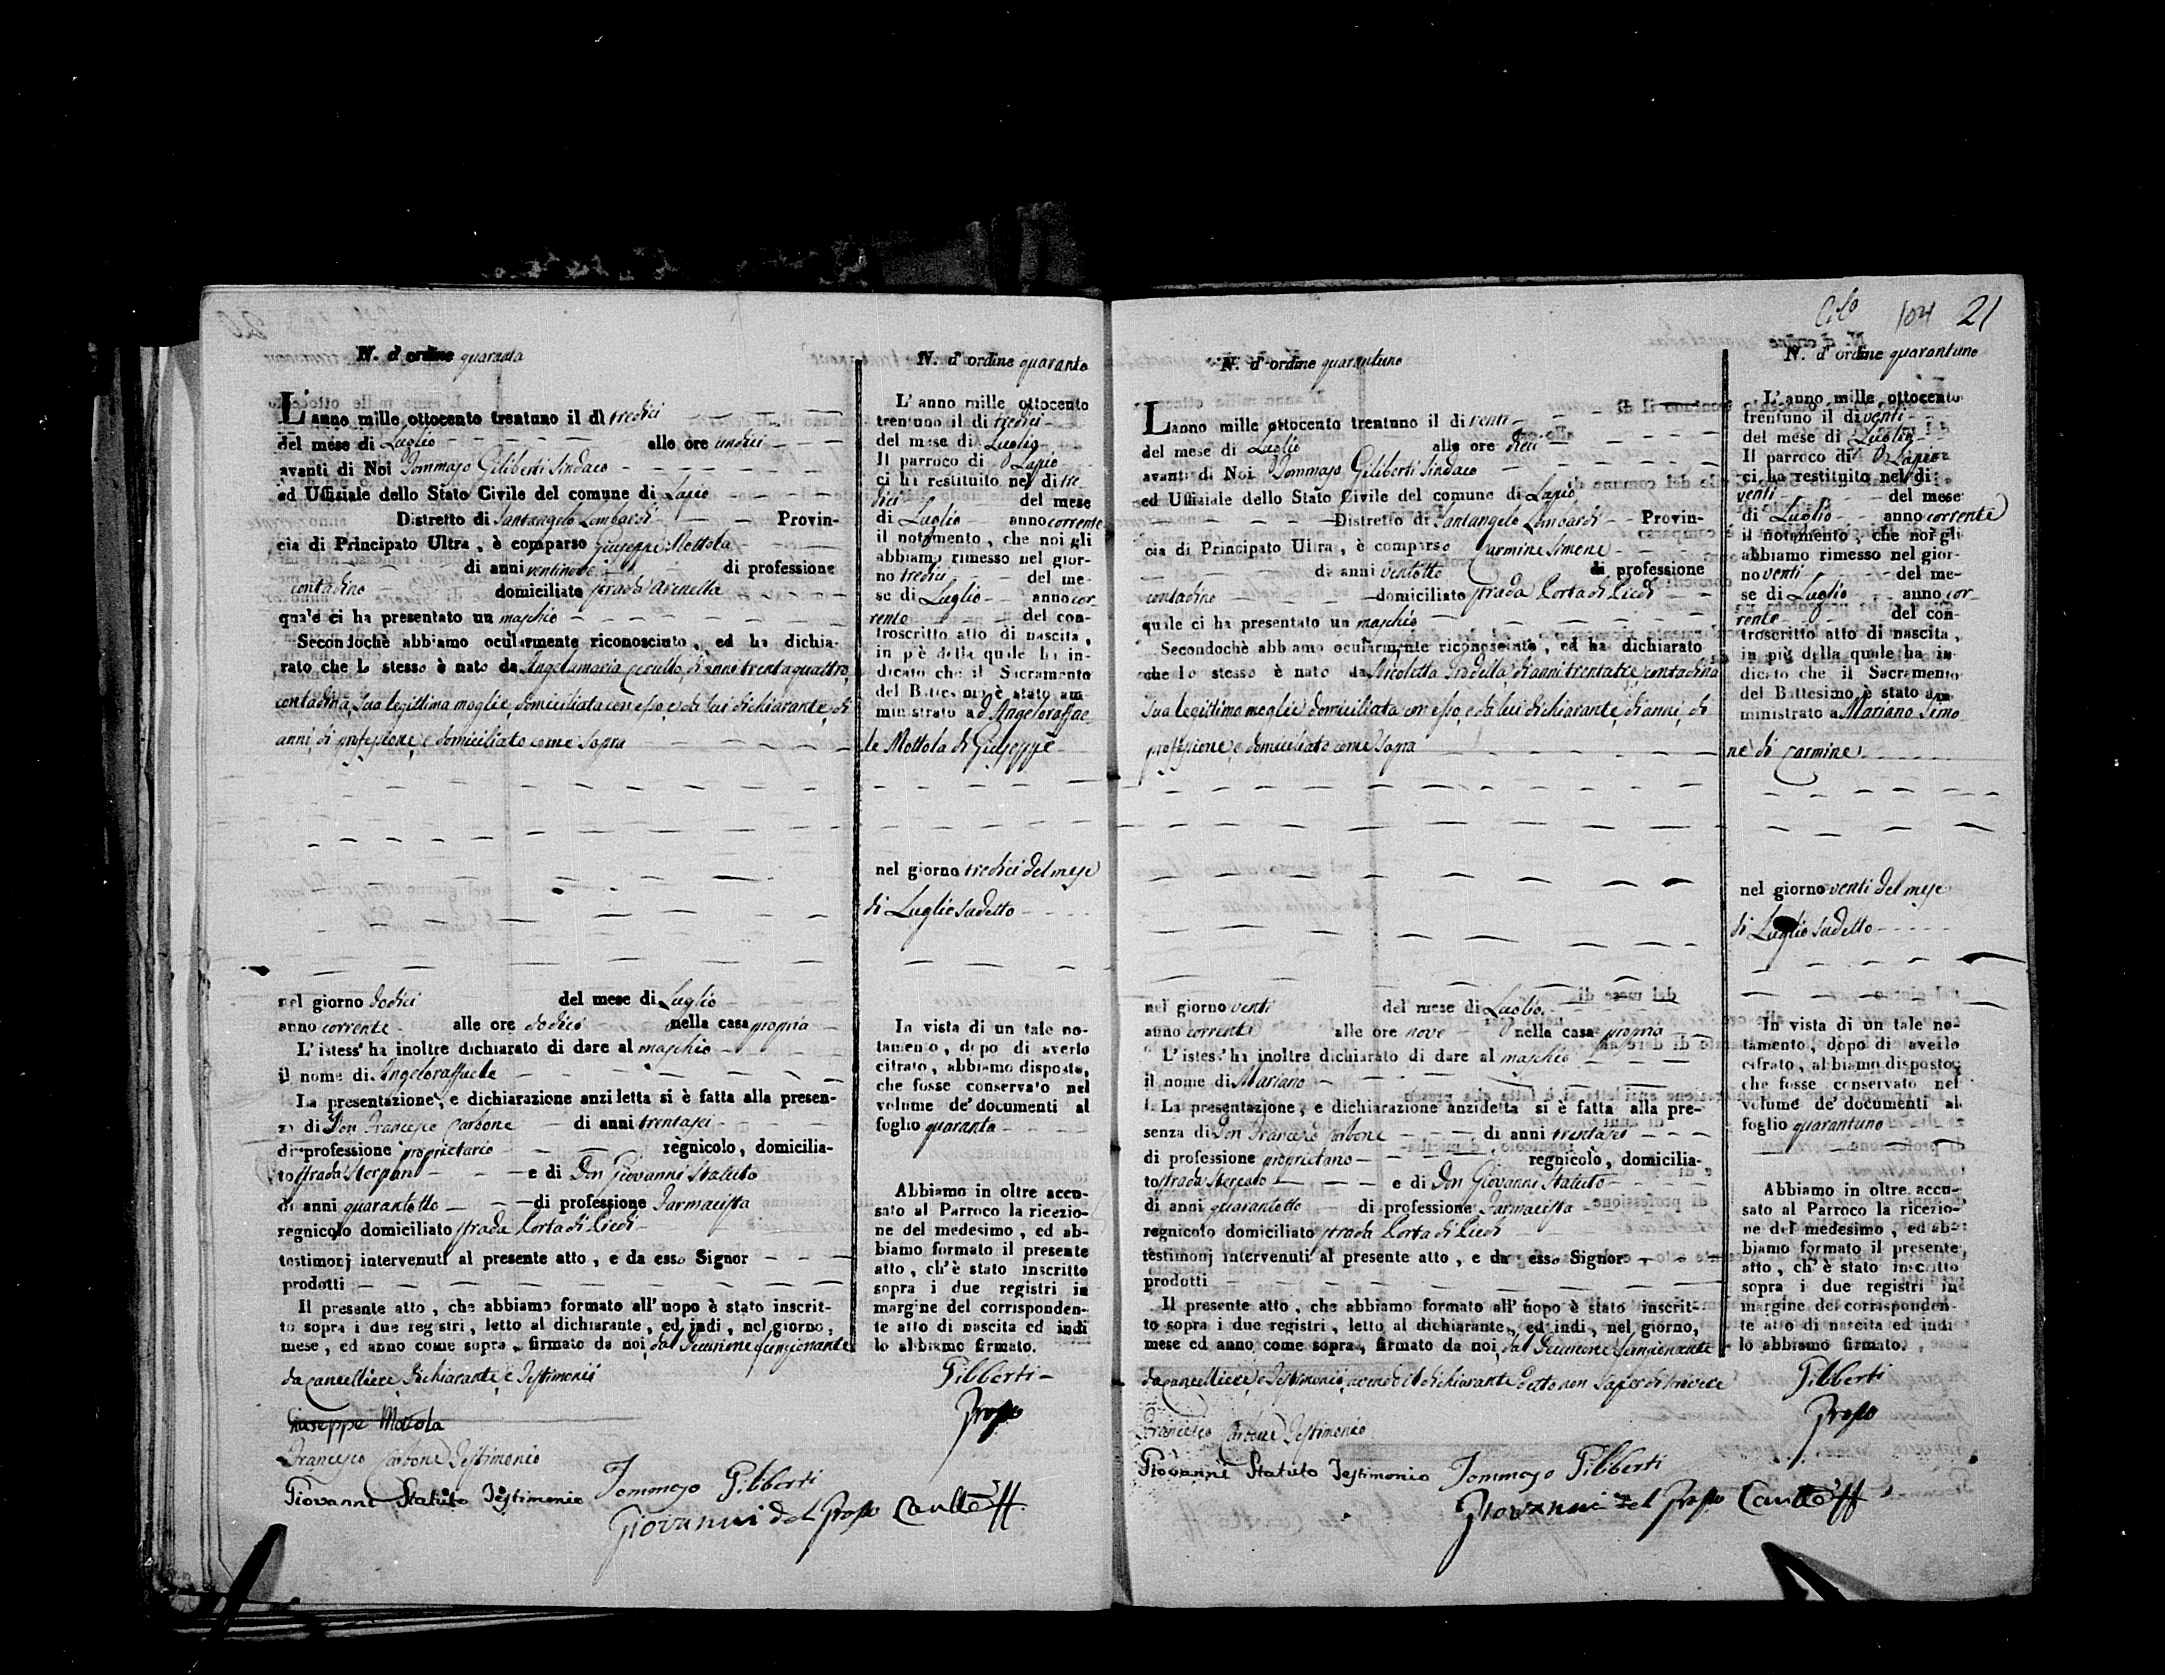 N. d'ordine quaranta
L'anno mille ottocento trentuno il dì tredici
del mese di Luglio alle ore undici
avanti di Noi Tommaso Giliberti Sindaco
ed Uffiziale dello Stato Civile del comune di Lapio
Distretto di Santangelo Lombardi Provin-
cia di Principato Ultra, è comparso Giuseppe Mottola
di anni ventinove di professione
contadino domiciliato strada Arenella
quale ci ha presentato un maschio
Secondochè abbiamo ocularmente riconosciuto, ed ha dichia-
rato che lo stesso è nato da Angelamaria di anni trentaquattro,
contadina, sua legittima moglie, domiciliata con esso, e da lui dichiarante, di
anni, di professione, e domiciliato come sopra
nel giorno dodici del mese di Luglio
anno corrente alle ore dodici nella casa propria
L'istess' ha inoltre dichiarato di dare al maschio
il nome di Angeloraffaele
La presentazione, e dichiarazione anziletta si è fatta alla presen-
za di Don Francesco Carbone di anni trentasei
di professione proprietario règnicolo, domicilia-
to strada e di Don Giovanni Statuto
di anni quarantotto di professione Farmacista
regnicolo domiciliato strada Porta di Piedi
testimonj intervenuti al presente atto, e da esso Signor
prodotti
Il presente atto, che abbiamo formato all'uopo è stato inscrit-
to sopra i due registri, letto al dichiarante, ed indi, nel giorno,
mese, ed anno come sopra, firmato da noi, dal Decurione funzionante
da cancelliere, dichiarante, e Testimonii
Giuseppe Mottola
Francesco Carbone Testimonio
Giovanni Statuto Testimonio
Tommaso Giliberti
Giovanni del Grosso
N. d'ordine quaranta
L'anno mille ottocento
trentuno il di tredici
del mese di Luglio
Il parroco di Lapio
ci ha restituito nel di tre
dici del mese
di Luglio anno corrente
il notamento, che noi gli
abbiamo rimesso nel gior-
no tredici del me-
se di Luglio anno cor-
rente del con-
troscritto atto di nascita,
in piè della quale ha in-
dicato che il Sacramento
del Battesimo è stato am-
ministrato ad Angeloraffae
le Mottola di Giuseppe
nel giorno tredici del mese
di Luglio sudetto
In vista di un tale no-
tamento, dopo di averlo
cifrato, abbiamo disposto,
che fosse conservato nel
volume de' documenti al
foglio quaranta
Abbiamo in oltre accu-
sato al Parroco la ricezio-
ne del medesimo, ed ab-
biamo formato il presente
atto, ch'è stato inscritto
sopra i due registri in
margine del corrisponden-
te atto di nascita ed indi
lo abbiamo firmato.
Giliberti
Grosso
104 21
N. d'ordine quarantuno
L'anno mille ottocento trentuno il di venti
del mese di Luglio alle ore dieci
avanti di Noi Tommaso Giliberti Sindaco
ed Uffiziale dello Stato Civile del comune di Lapio
Distretto di Santangelo Lombardi Provin-
cia di Principato Ultra, è comparso Carmine Simone
di anni ventotto di professione
contadino domiciliato strada Porta di Piedi
quale ci ha presentato un maschio
Secondochè abbiamo ocularmente riconosciuto, ed ha dichiarato
che lo stesso è nato da Nicoletta di anni trentatre, contadina
sua legittima moglie domiciliata con esso, e da lui dichiarante, di anni, di
professione, e domiciliato come sopra
nel giorno venti del mese di Luglio
anno corrente alle ore nove nella casa propria
L'istess' ha inoltre dichiarato di dare al maschio
il nome di Mariano
La presentazione, e dichiarazione anzidetta si è fatta alla pre-
senza di Don Francesco Carbone di anni trentasei
di professione proprietario regnicolo, domicilia-
to strada e di Don Giovanni Statuto
di anni quarantotto di professione Farmacista
regnicolo domiciliato strada Porta di Piedi
testimonj intervenuti al presente atto, e da esso Signor
prodotti
Il presente atto, che abbiamo formato all'uopo è stato inscrit-
to sopra i due registri, letto al dichiarante, ed indi, nel giorno,
mese ed anno come sopra, firmato da noi, dal Decurione funzionante
da cancelliere, e Testimonii, avendo il dichiarante detto non saper scrivere
Francesco Carbone Testimonio
Giovanni Statuto Testimonio
Tommaso Giliberti
Giovanni del Grosso
N. d'ordine quarantuno
L'anno mille ottocento
trentuno il di venti
del mese di Luglio
Il parroco di Lapio
ci ha restituito nel di
venti del mese
di Luglio anno corrente
il notamento, che noi gli
abbiamo rimesso nel gior-
no venti del me-
se di Luglio anno cor-
rente del con-
troscritto atto di nascita,
in piè della quale ha in-
dicato che il Sacramento
del Battesimo è stato am-
ministrato a Mariano Simo
ne di Carmine
nel giorno venti del mese
di Luglio sudetto
In vista di un tale no-
tamento, dopo di averlo
cifrato, abbiamo disposto,
che fosse conservato nel
volume de' documenti al
foglio quarantuno
Abbiamo in oltre accu-
sato al Parroco la ricezio-
ne del medesimo, ed ab-
biamo formato il presente,
atto, ch'è stato inscritto
sopra i due registri in
margine del corrisponden-
te atto di nascita ed indi
lo abbiamo firmato.
Giliberti
Grosso